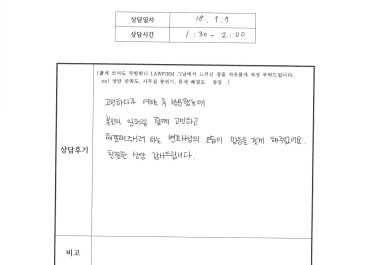 상담일자 18. 9. 7
상담시간 1:30 - 2:00
(짧게 쓰셔도 무방하니 LAWFIRM 그날에서 느끼신 점을 자유롭게 작성 부탁드립니다.
ex) 상담 만족도, 사무실 분위기, 문제 해결도 등등 )
상담후기
고민하다가 예약 후 방문했는데
본인의 일처럼 함께 고민하고
해결해주시려 하는 변호사님의 모습이 믿음을 갖게 해주었어요.
친절한 상담 감사드립니다.
비고